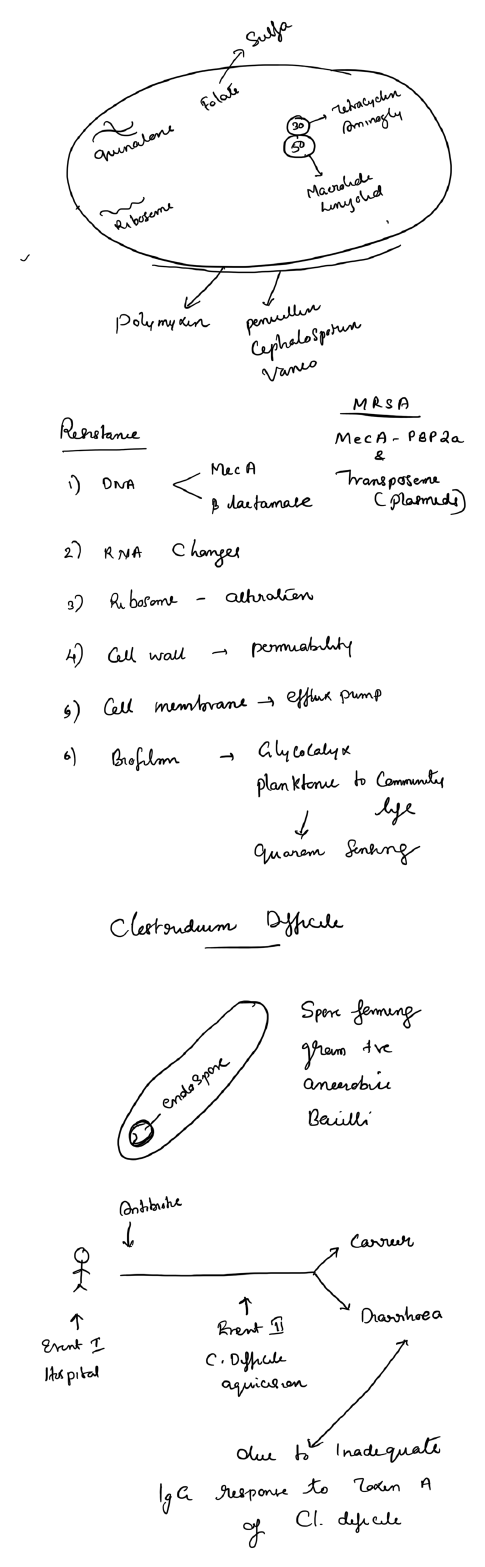 Sulfa
Folate
Quinalone
30
Tetracyclin
Aminogly
50
Macrolide
Linyolid
Ribosome
Polymyxin
penicillin
Cephalosporin
Vanco
MRSA
MecA - PBP2a
&
Transposeme
(plasmids)
Resistance
1) DNA
MecA
β lactamase
2) RNA Changes
3) Ribosome - altration
4) Cell wall → permiability
5) Cell membrane → efflux pump
6) Biofilm → Glycocalyx
planktonic to Community
lyfe
Quoram Sensing
Clostridium Difficile
Endospore
Spore forming
gram +ve
anaerobic
Bacilli
Antibiotic
Carrier
Diarrhoea
Event I
Hospital
Event II
C. Difficile
aquicision
due to Inadequate
IgG response to Toxin A
of Cl. deficile